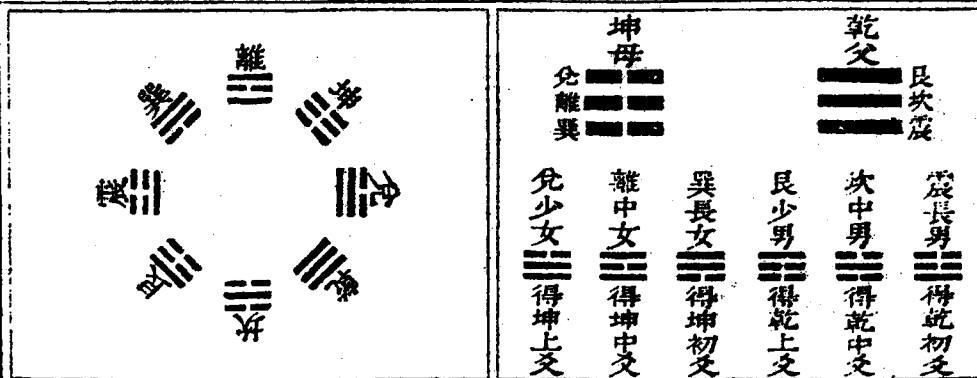 乾父
艮坎震
坤母
兌離巽
震長男
得乾初爻
坎中男
得乾中爻
艮少男
得乾上爻
巽長女
得坤初爻
離中女
得坤中爻
兌少女
得坤上爻
離
坤
兌
乾
坎
艮
震
巽